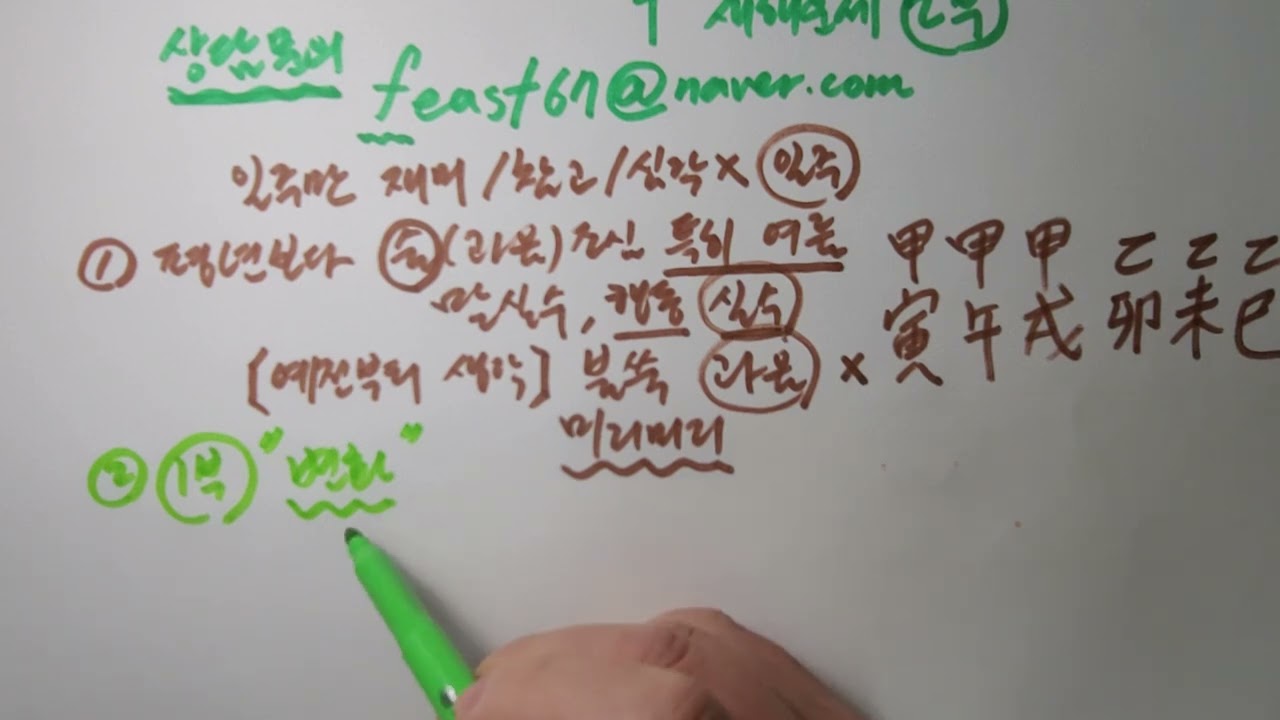 새해운세 2부
상담문의
feast67@naver.com
일주만 재미/참고/심각× 일주
① 평년보다 술(과음)조심 특히 여름 甲 甲 甲 乙 乙 乙
말실수, 행동 실수 寅 午 戌 卯 未 巳
[예전부터 생각] 불쑥 과음 ×
미리미리
② 1부 "변화"